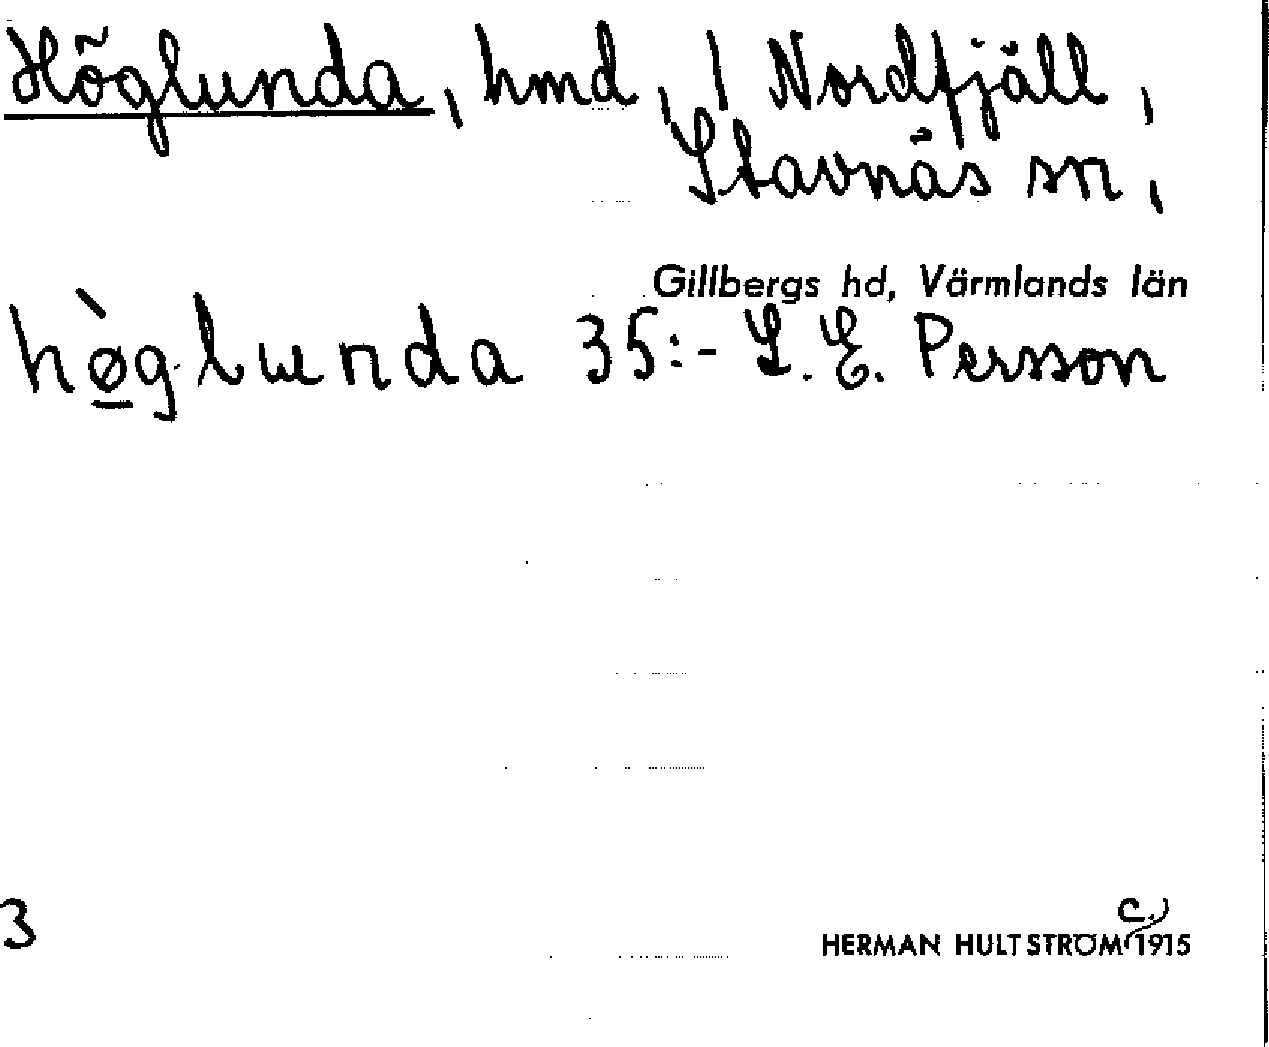 Höglunda, hmd, / Nordfjäll,
Stavnäs sn,
Gillbergs hd, Värmlands län
hø̀glunda 35:- L. E. Persson
3
HERMAN HULTSTRÖM (c.) 1915